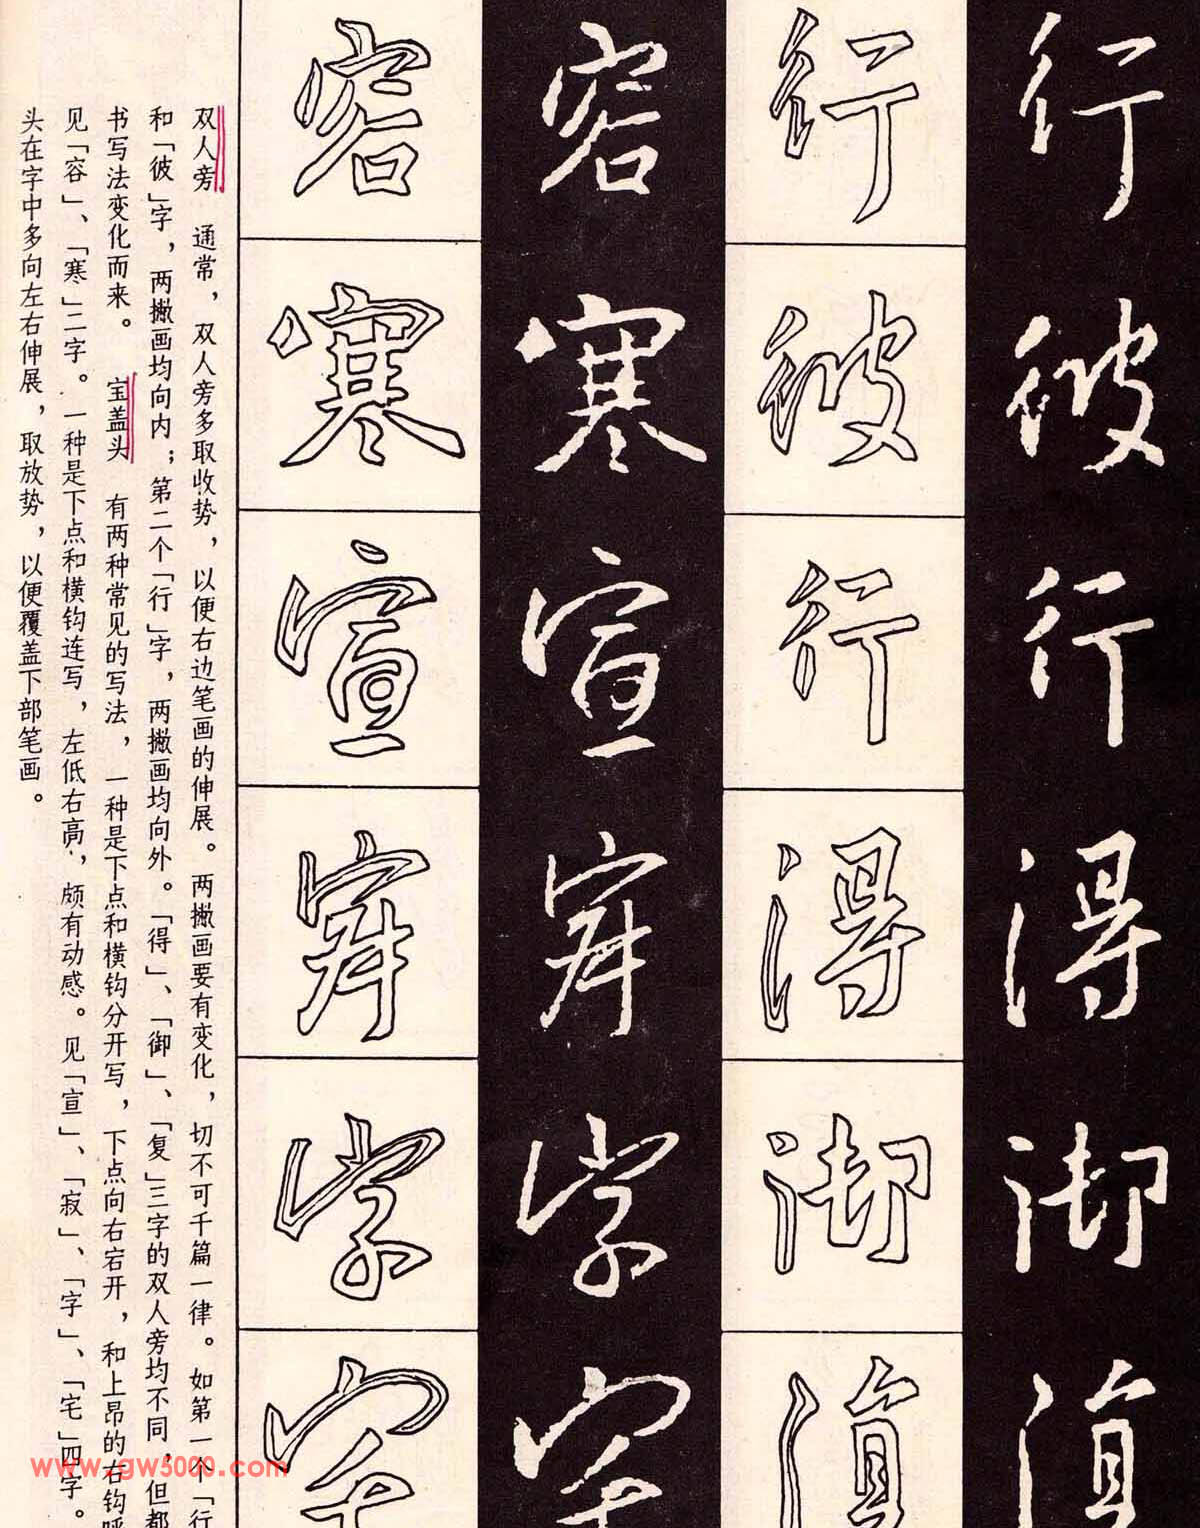 行
彼
行
得
御
复
容
寒
宣
寂
字
宅
双人旁　通常，双人旁多取收势，以便右边笔画的伸展。两撇画要有变化，切不可千篇一律。如第一个「行
和「彼」字，两撇画均向内；第二个「行」字，两撇画均向外。「得」、「御」、「复」三字的双人旁均不同，但都
书写法变化而来。　宝盖头　有两种常见的写法，一种是下点和横钩分开写，下点向右宕开，和上昂的右钩呼
见「容」、「寒」二字。一种是下点和横钩连写，左低右高，颇有动感。见「宣」、「寂」、「字」、「宅」四字。
头在字中多向左右伸展，取放势，以便覆盖下部笔画。
www.gw5000.com